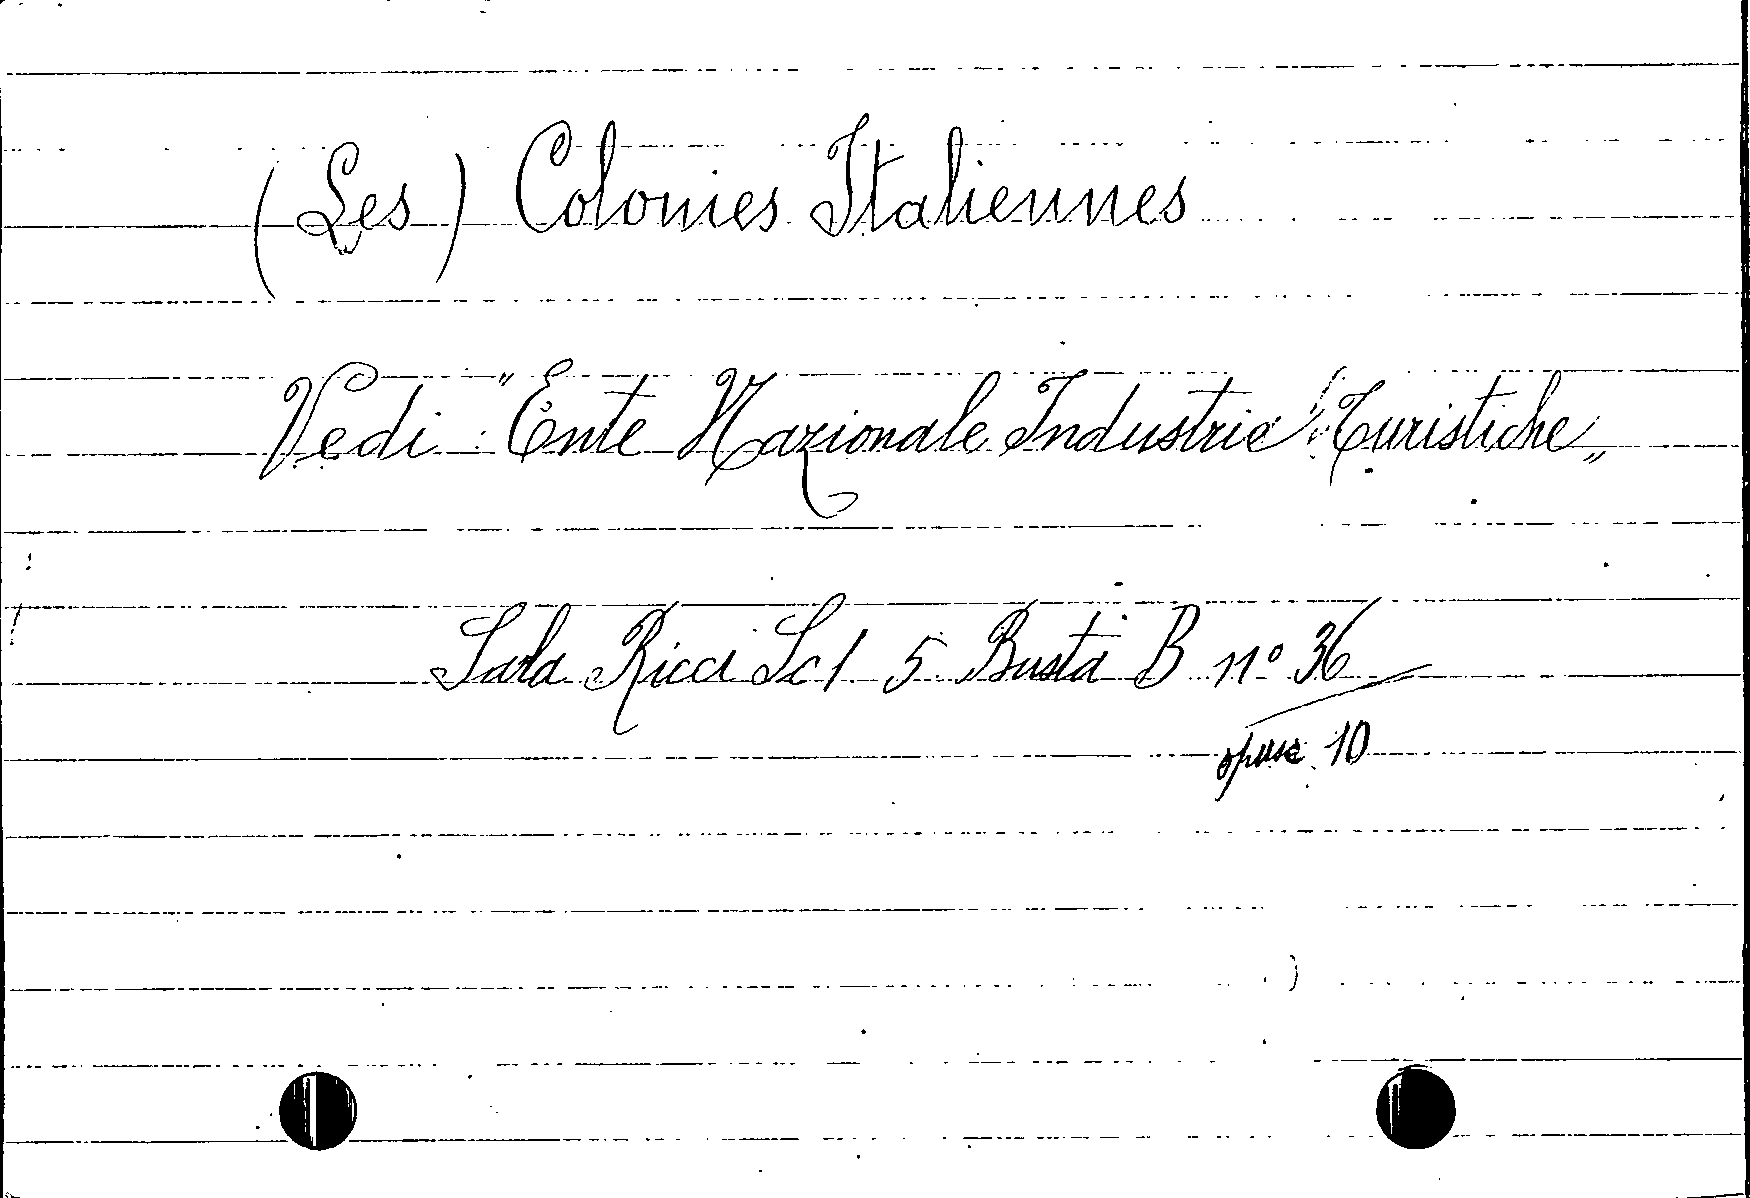 (Les) Colonies Italiennes
Vedi: "Ente Nazionale Industrie Turistiche"
Sala Ricci Sc 1 5 Busta B n° 36
opusc. 10